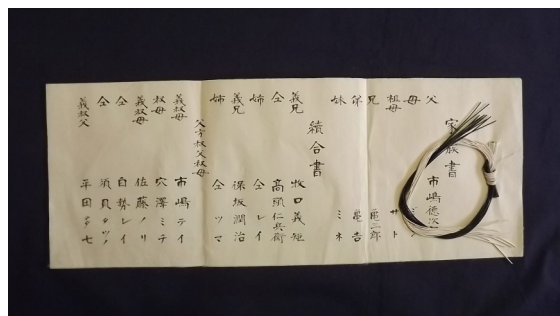 家族書
父 市嶋徳次
母
祖母
兄 二郎
弟 亀吉
妹 ミネ
續合書
義兄 牧口義矩
仝 高頭仁兵衛
姉 仝レイ
義兄 保坂潤治
姉 仝ツマ
父 叔父叔母
義叔母 市嶋テイ
叔母 穴澤ミテ
義叔母 佐藤ノリ
仝 白勢レイ
仝 須貝タツ
義叔父 平田多七